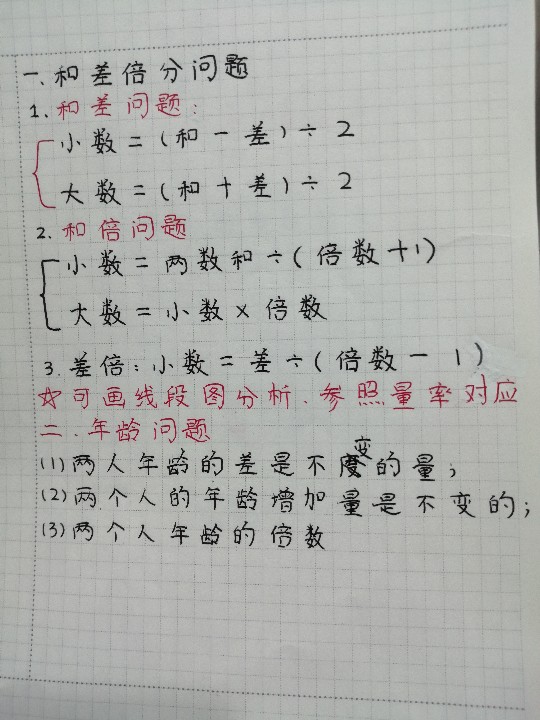 一、和差倍分问题
1.和差问题:
小数=(和-差)÷2
大数=(和+差)÷2
2.和倍问题
小数=两数和÷(倍数+1)
大数=小数×倍数
3.差倍:小数=差÷(倍数-1)
☆可画线段图分析.参照量率对应
二.年龄问题
(1)两人年龄的差是不变的量;
(2)两个人的年龄增加量是不变的;
(3)两个人年龄的倍数